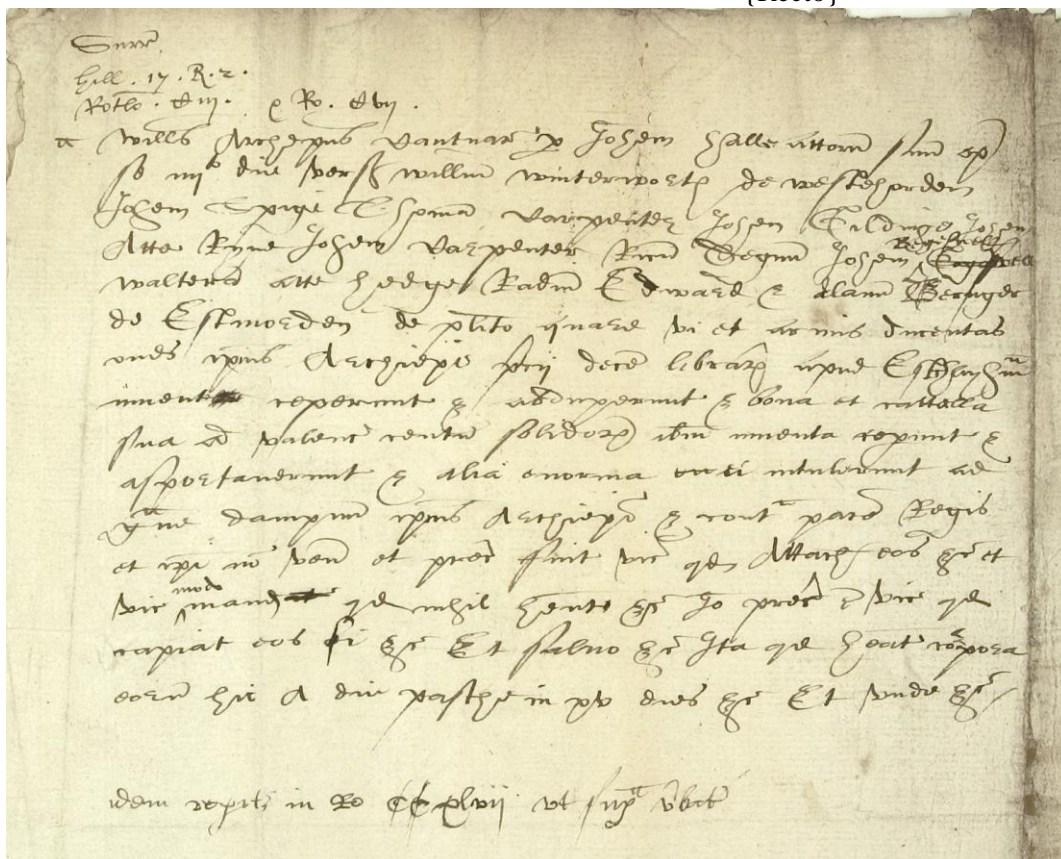 {Recto}
Surr
Hill . 17 . R . 2 .
Rotlo . diii . Ro . dvii .
a Wills Archepus Cantuar p Johem Halle attorn suu op
se iiii° die vers Willm Winterworth de Westhorden
Johem Spige Thoma Carpenter Johem Gildinge Johem
Atte Ryne Johem Carpenter Ricu Johem
Walteru atte Hedge Radm Edward & Alanu Berenger
de Estmorden de plito quare vi et armis ducentas
oues ipius Archiepi pcii dece librar apud
inuent ceperunt & abduxerunt & bona et cattella
sua ad valenc centu solidor ibm inuenta cepunt &
asportauerunt & alia enorma ei intulerunt ad
gaue dampnu ipius Archiepi & cont pace Regis
et ipi no ven et prec fuit vic qd Attach eos &c et
vic modo mand qd nihil hent &c Jo prec e vic qd
capiat eos si &c Et saluo &c Ita qd heat corpora
eoru hic a die pasche in xv dies &c Et vnde &c
idem in Ro CCxlvii vt sup vbat